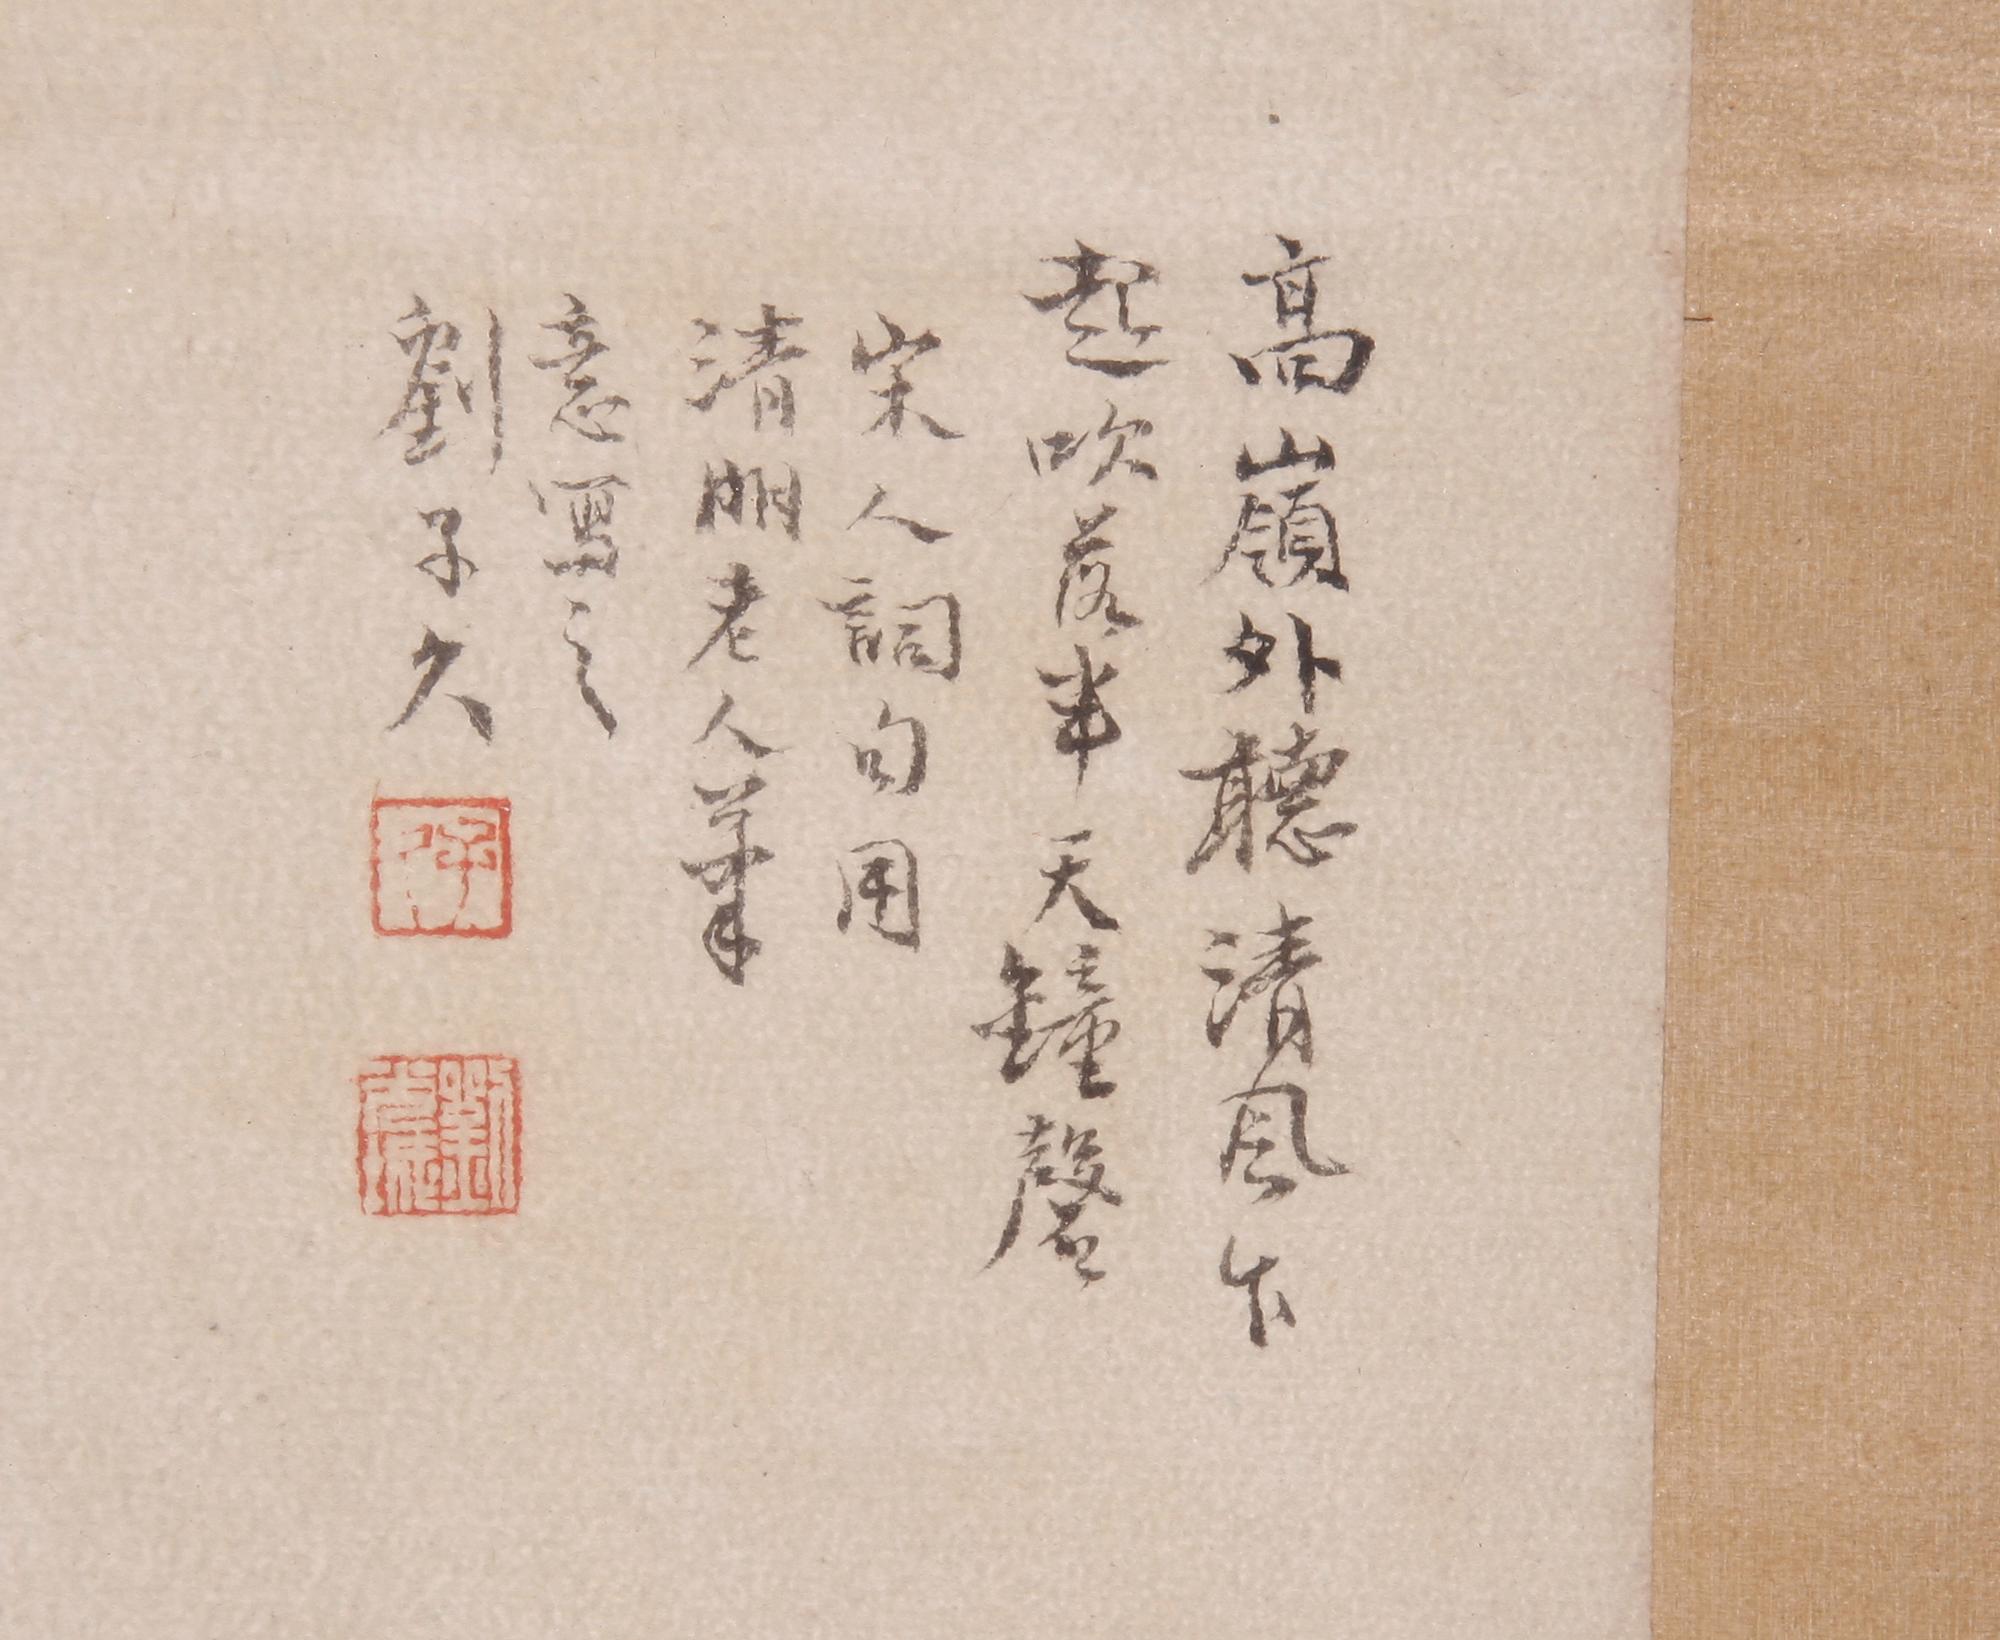 高嶺外聽清風乍
起吹落半天鐘磬
宋人詞句用
清朙老人筆
意寫之
劉子久
子久